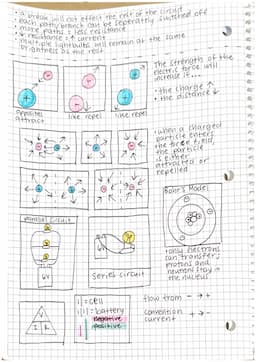 • a break will not effect the rest of the circuit
• each path/branch can be seperately switched off
• more paths = less resistance
• ↓ resistance = ↑ current
• multiple lightbulbs will remain at the same
brightness as the rest
The strength of the
electric force will
increase if...
• the charge ↑
• the distance ↓
opposites
attract
like repel
like repel
• when a charged
particle enters
the force field,
the particle
is either
attracted or
repelled
Bohr's Model
parallel circuit
6V
series circuit
• only electrons
can transfer;
protons and
neutrons stay in
the nucleus
V
I R
= cell
= battery
negative
positive
flow from - → +
convention
current + → -